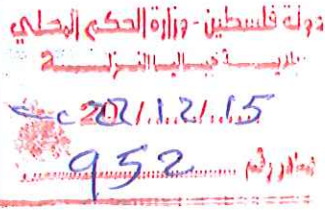 دولة فلسطين - وزارة الحكم المحلي
بلديـــة جباليا النـزلـــة
2021/12/15
صادر رقم 952